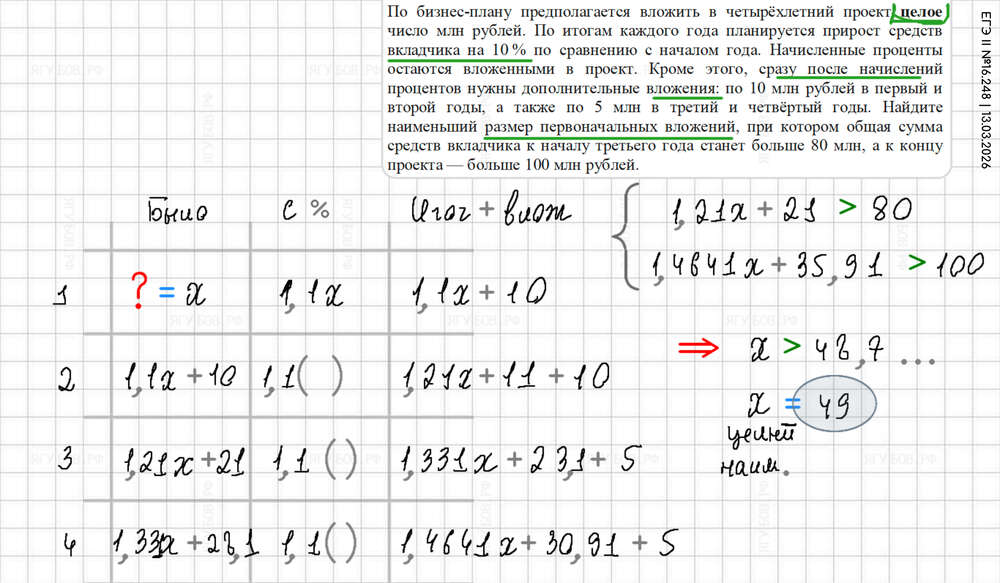 По бизнес-плану предполагается вложить в четырёхлетний проект целое
число млн рублей. По итогам каждого года планируется прирост средств
вкладчика на 10 % по сравнению с началом года. Начисленные проценты
остаются вложенными в проект. Кроме этого, сразу после начислений
процентов нужны дополнительные вложения: по 10 млн рублей в первый и
второй годы, а также по 5 млн в третий и четвёртый годы. Найдите
наименьший размер первоначальных вложений, при котором общая сумма
средств вкладчика к началу третьего года станет больше 80 млн, а к концу
проекта — больше 100 млн рублей.
ЕГЭ II №16.248 | 13.03.2026
Было С % Итог + влож
1 ? = x 1,1x 1,1x + 10
2 1,1x + 10 1,1( ) 1,21x + 11 + 10
3 1,21x + 21 1,1 ( ) 1,331x + 23,1 + 5
4 1,331x + 28,1 1,1 ( ) 1,4641x + 30,91 + 5
1,21x + 21 > 80
1,4641x + 35,91 > 100
⇒ x > 48,7 ...
x = 49
целый
наим.
ЯГУБОВ.РФ